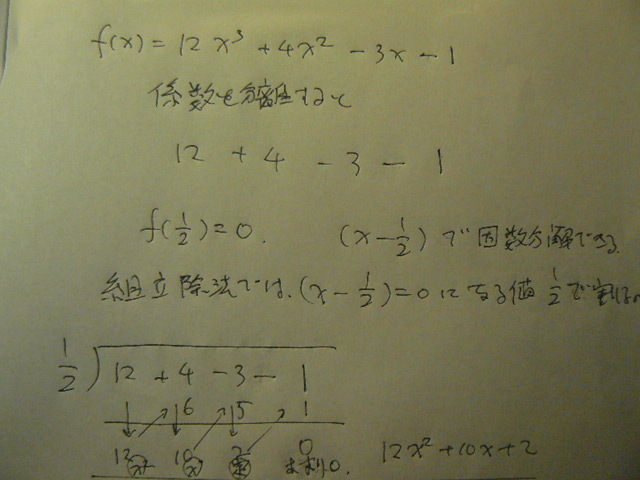 f(x) = 12x³ + 4x² - 3x - 1
係数を分離すると
12 + 4 - 3 - 1
f(1/2) = 0. (x - 1/2) で因数分解できる
組立除法では、(x - 1/2) = 0 になる値 1/2 で割る
1/2 ) 12 + 4 - 3 - 1
6 5 1
12 10 2 0
余り0. 12x² + 10x + 2